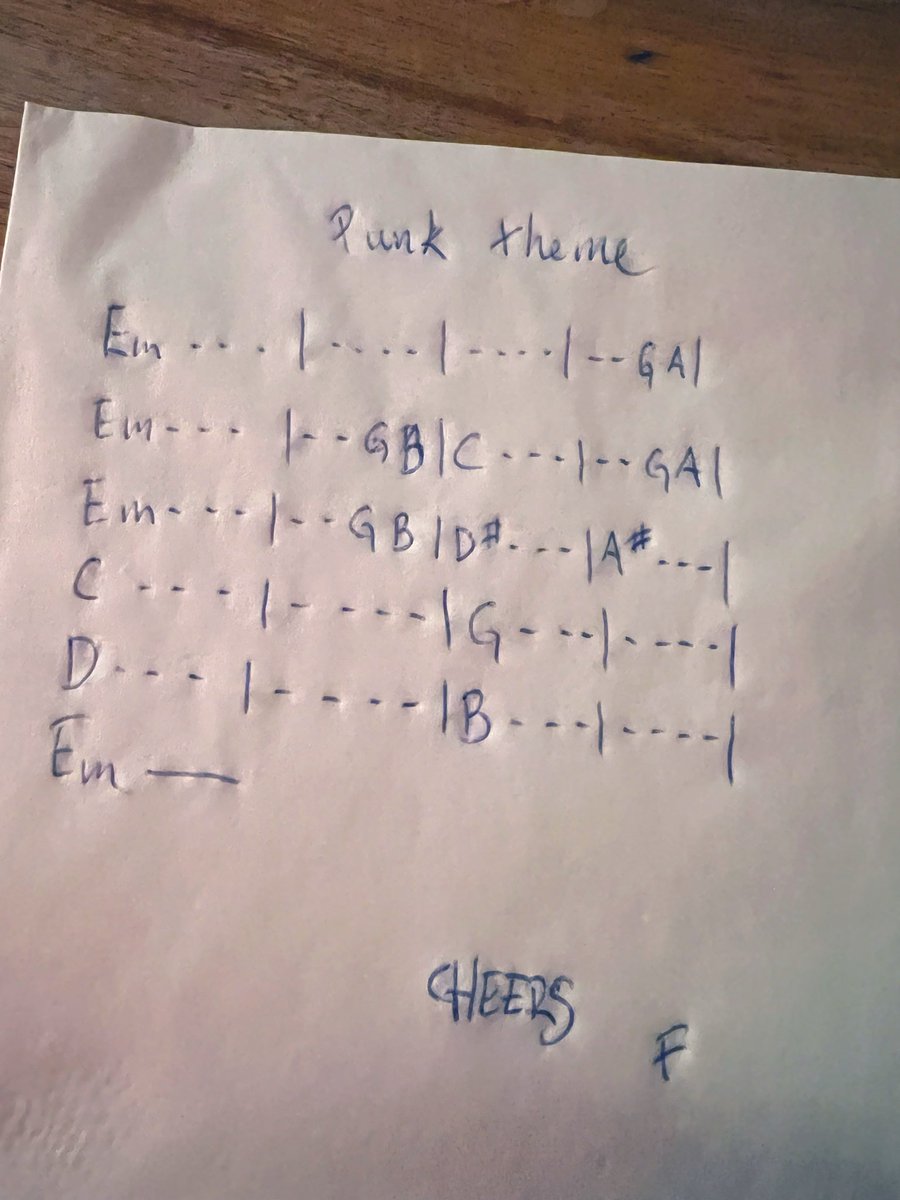 Punk theme
Em - - - | - - - - | - - - - | - - G A |
Em - - - | - - G B | C - - - | - - G A |
Em - - - | - - G B | D# - - - | A# - - - |
C - - - | - - - - | G - - - | - - - - |
D - - - | - - - - | B - - - | - - - - |
Em —
CHEERS
F